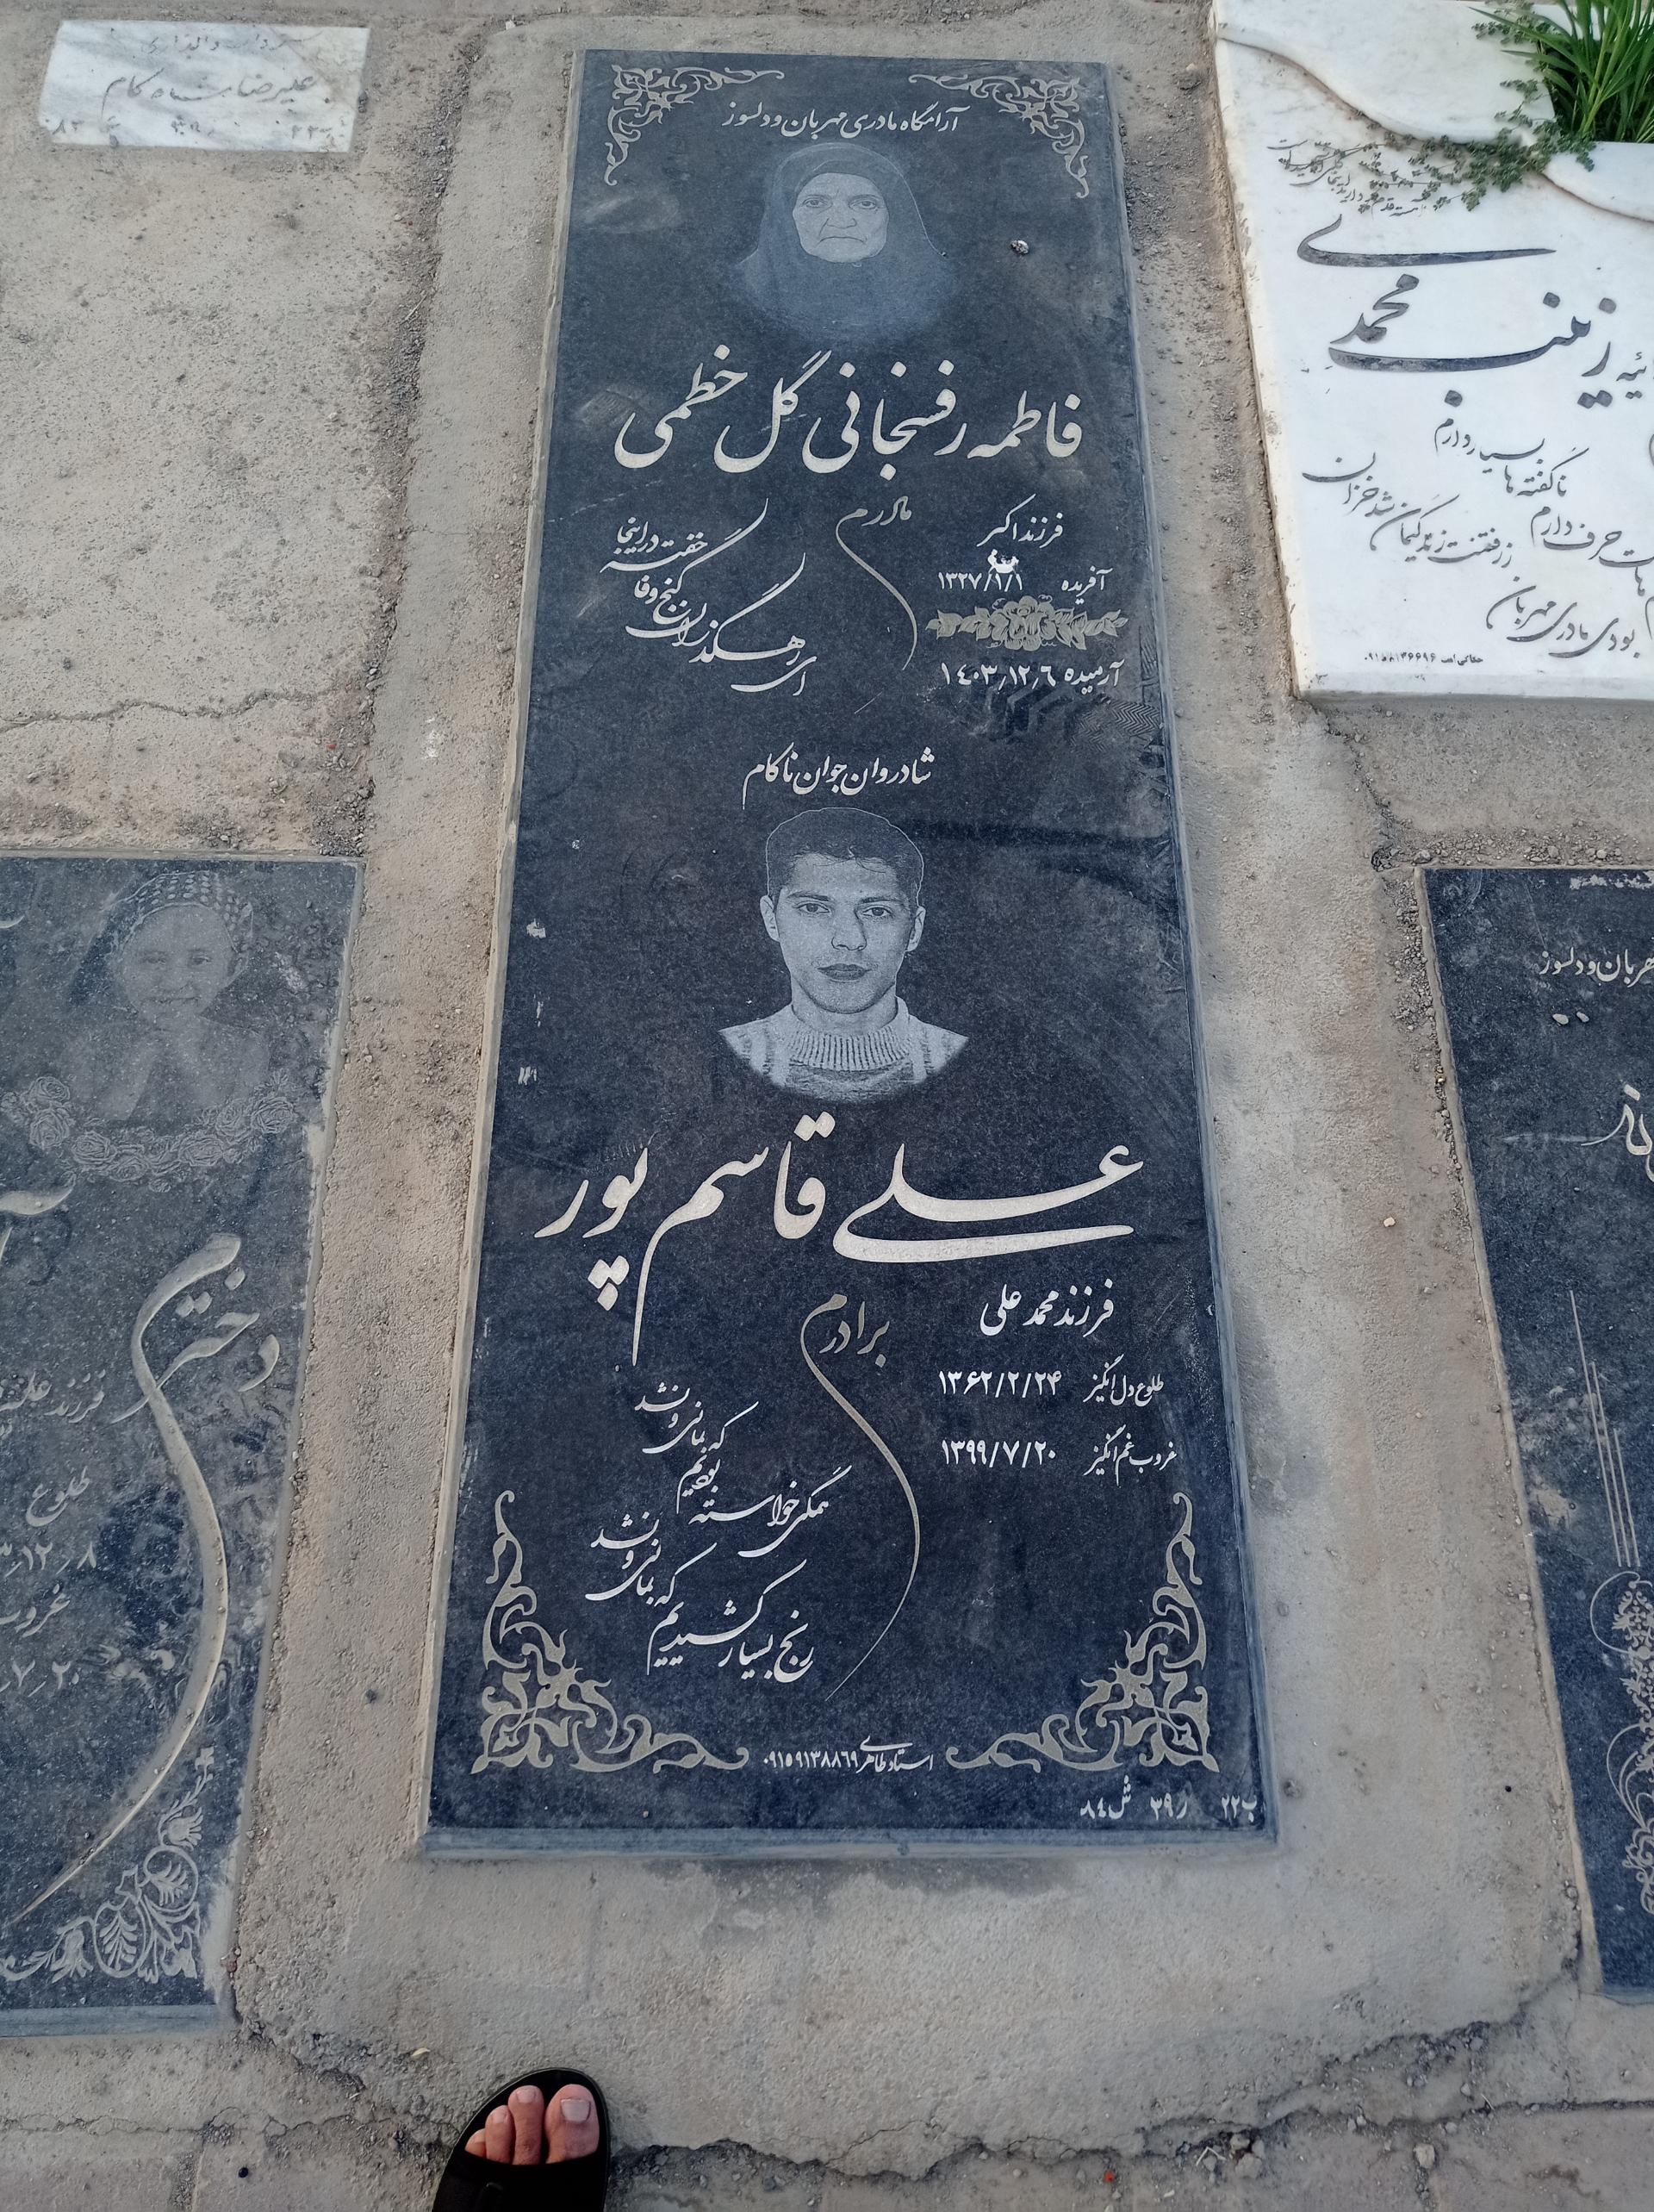 آرامگاه مادری مهربان و دلسوز
فاطمه رفسنجانی گل خطمی
فرزند اکبر
آفریده ۱۳۲۷/۱/۱
آرمیده ۱۴۰۳٫۱۲٫۶
مادرم
ای رهگذران گنج وفا
خفته در اینجا
شادروان جوان ناکام
علی قاسم پور
فرزند محمد علی
طلوع دل انگیز ۱۳۶۲/۲/۲۴
غروب غم انگیز ۱۳۹۹/۷/۲۰
برادرم
همگی خواسته بودیم که بمانی و نشد
رنج بسیار کشیدیم که بمانی و نشد
استاد طاهری ۰۹۱۵۹۱۳۸۸۶۹
ب۲۲ ر۳۹ ش۸۴
علیرضا
زینب محمدی
ناگفته ها بسیار دارم
حرف دارم
بودی مادری مهربان
۰۹۱۵۸۱۳۶۶۹۶
دخترم
فرزند
طلوع
۱۲٫۸
غروب
۷٫۲۰
مهربان و دلسوز